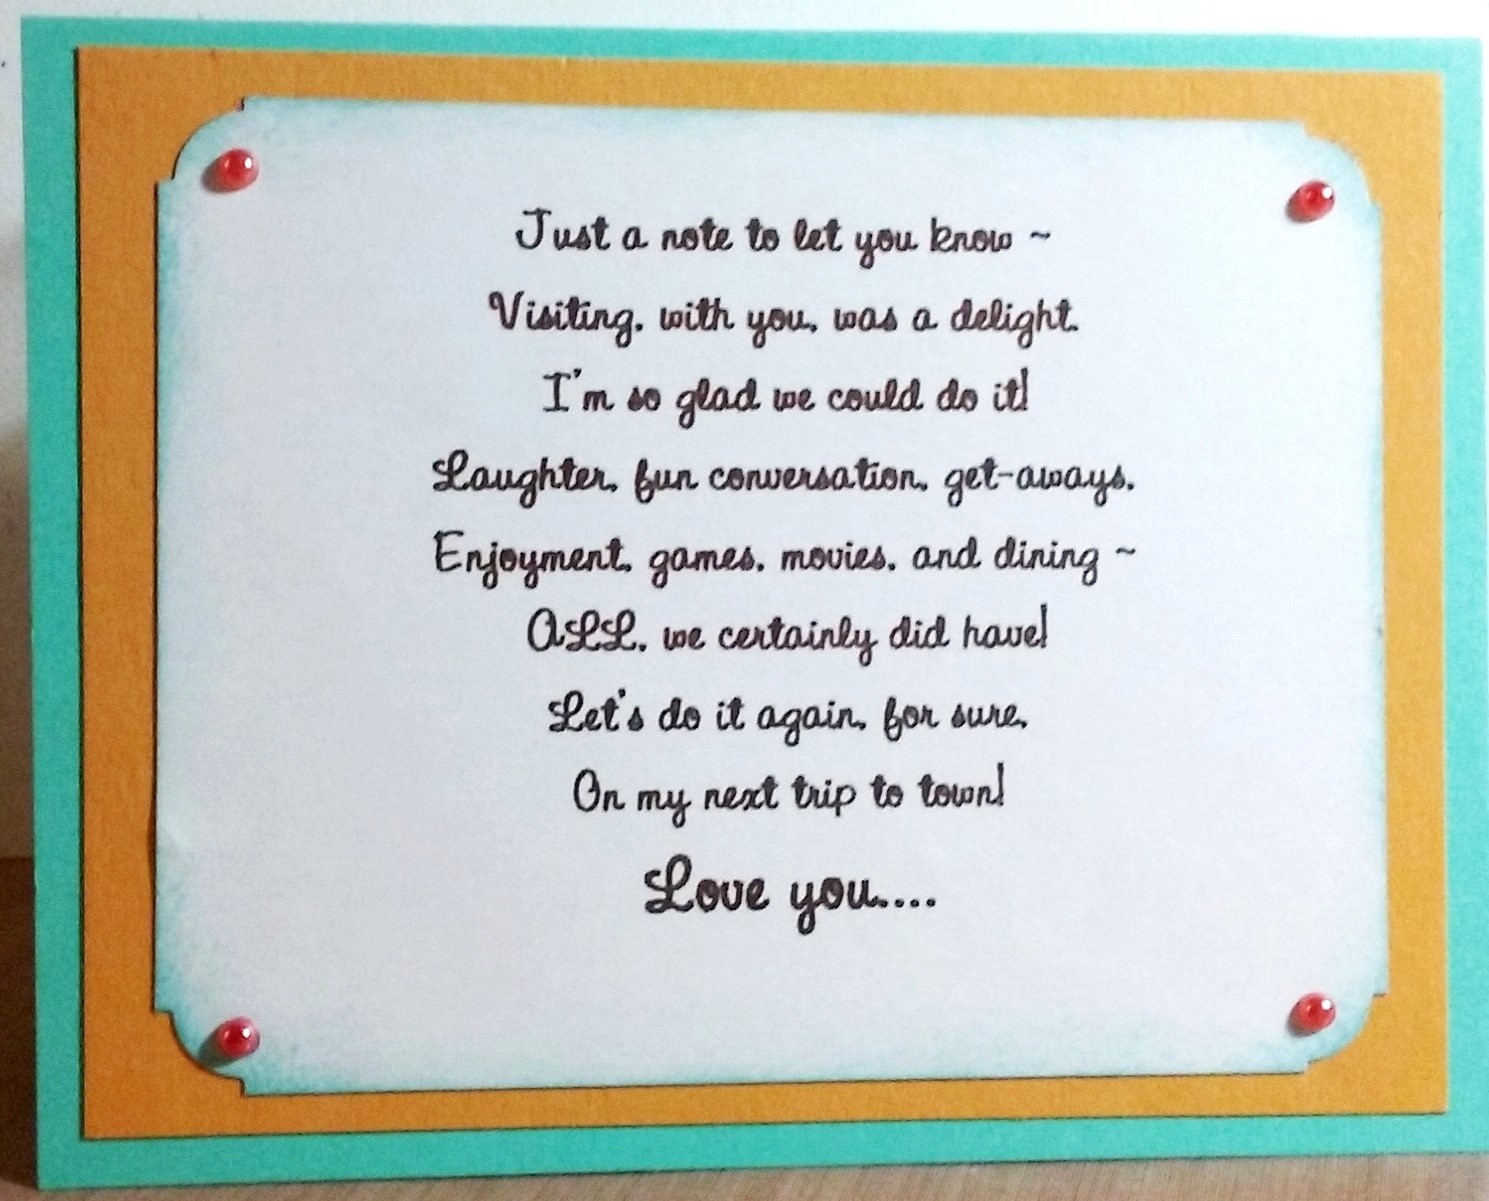 Just a note to let you know ~
Visiting, with you, was a delight.
I'm so glad we could do it!
Laughter, fun conversation, get-aways,
Enjoyment, games, movies, and dining ~
ALL, we certainly did have!
Let's do it again, for sure,
On my next trip to town!
Love you....